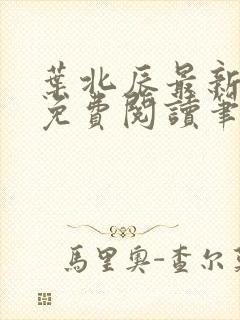 葉北辰最新
免費閱讀筆
馬里奧-查尔